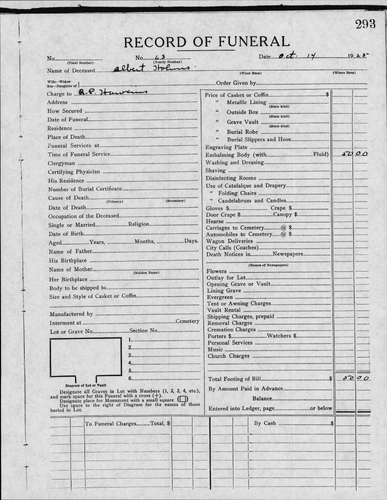 293
RECORD OF FUNERAL
No. No. 63 Date Oct 14 19
(Total Number) (Yearly Number)
Name of Deceased Albert
(When Born) (Where Born)
Wife - Widow
Son - Daughter of
Order Given by
Charge to
Address
How Secured
Date of Funeral
Residence
Place of Death
Funeral Services at
Time of Funeral Service
Clergyman
Certifying Physician
His Residence
Number of Burial Certificate
Cause of Death
(Primary) (Secondary)
Date of Death
Occupation of the Deceased
Single or Married Religion
Date of Birth
Aged Years, Months, Days.
Name of Father
His Birthplace
Name of Mother
(Maiden Name)
Her Birthplace
Body to be shipped to
Size and Style of Casket or Coffin
Manufactured by
Interment at Cemetery
Lot or Grave No. Section No.
1.
2.
3.
4.
5.
6.
Diagram of Lot or Vault
Designate all Graves in Lot with Numbers (1, 2, 3, 4, etc.),
and mark space for this Funeral with a cross (+).
Designate place for Monument with a small square
Use space to the right of Diagram for the names of those
buried in Lot.
Price of Casket or Coffin $
" Metallic Lining
(State Kind)
" Outside Box
(State Kind)
" Grave Vault
(State Kind)
" Burial Robe
" Burial Slippers and Hose
Engraving Plate
Embalming Body (with Fluid) 50 00
Washing and Dressing
Shaving
Disinfecting Rooms
Use of Catafalque and Drapery
" Folding Chairs
" Candelabrum and Candles
Gloves $ Crape $
Door Crape $ Canopy $
Hearse
Carriages to Cemetery @ $
Automobiles to Cemetery @ $
Wagon Deliveries
City Calls (Coaches)
Death Notices in Newspapers
(Names of Newspapers)
Flowers
Outlay for Lot
Opening Grave or Vault
Lining Grave
Evergreen
Tent or Awning Charges
Vault Rental
Shipping Charges, prepaid
Removal Charges
Cremation Charges
Porters $ Watchers $
Personal Services
Music
Church Charges
Total Footing of Bill $ 50 00
By Amount Paid in Advance
Balance
Entered into Ledger, page or below
To Funeral Charges Total, $ By Cash $